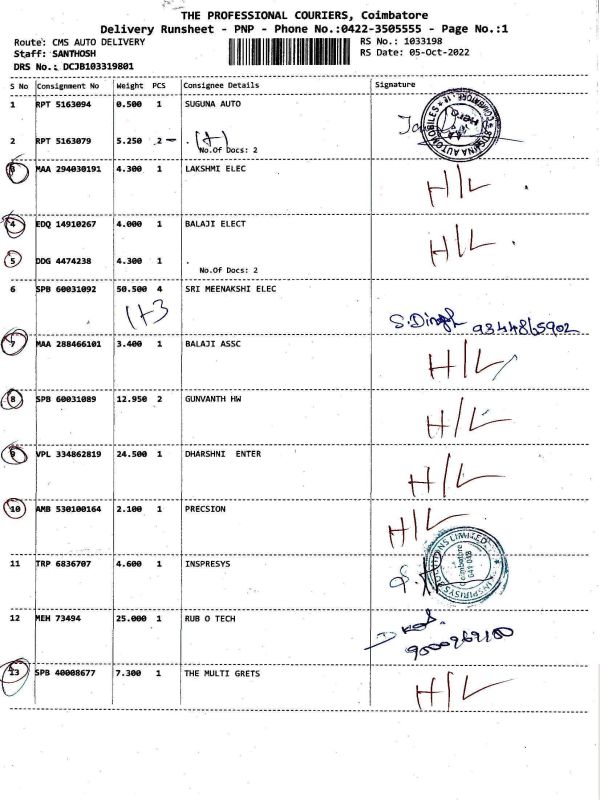 THE PROFESSIONAL COURIERS, Coimbatore
Delivery Runsheet - PNP - Phone No.:0422-3505555 - Page No.:1
Route: CMS AUTO DELIVERY RS No.: 1033198
Staff: SANTHOSH RS Date: 05-Oct-2022
DRS No.: DCJB103319801
S No Consignment No Weight PCS Consignee Details Signature
1 RPT 5163094 0.500 1 SUGUNA AUTO
2 RPT 5163079 5.250 2 - . (1+)
No.Of Docs: 2
SUGUNA AUTOMOBILES
3 MAA 294030191 4.300 1 LAKSHMI ELEC H/L
4 EDQ 14910267 4.000 1 BALAJI ELECT H/L
5 DDG 4474238 4.300 1 .
No.Of Docs: 2
6 SPB 60031092 50.500 4 SRI MEENAKSHI ELEC
1+3
7 MAA 288466101 3.400 1 BALAJI ASSC H/L
8 SPB 60031089 12.950 2 GUNVANTH HW H/L
9 VPL 334862819 24.500 1 DHARSHNI ENTER H/L
10 AMB 530100164 2.100 1 PRECSION H/L
11 TRP 6836707 4.600 1 INSPRESYS
Coimbatore
12 MEH 73494 25.000 1 RUB O TECH
13 SPB 40008677 7.300 1 THE MULTI GRETS H/L